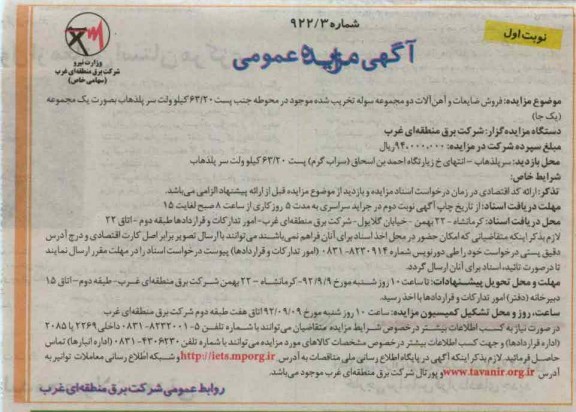 شماره ۹۲۲/۳
نوبت اول
وزارت نیرو
شرکت برق منطقه‌ای غرب
(سهامی خاص)
آگهی مزایده عمومی
موضوع مزایده: فروش ضایعات و آهن آلات دو مجموعه سوله تخریب شده موجود در محوطه جنب پست ۶۳/۲۰ کیلو ولت سر پلذهاب بصورت یک مجموعه
(یک جا)
دستگاه مزایده گزار: شرکت برق منطقه‌ای غرب
مبلغ سپرده شرکت در مزایده: ۹۴۰۰۰۰۰۰ ریال
محل بازدید: سرپلذهاب - انتهای خ زیارتگاه احمد بن اسحاق (سراب گرم) پست ۶۳/۲۰ کیلو ولت سر پلذهاب
شرایط خاص:
تذکر: ارائه کد اقتصادی در زمان درخواست اسناد مزایده و بازدید از موضوع مزایده قبل از ارائه پیشنهاد الزامی می‌باشد.
مهلت دریافت اسناد: از تاریخ چاپ آگهی نوبت دوم در جراید سراسری به مدت ۵ روز کاری از ساعت ۸ صبح لغایت ۱۵
محل دریافت اسناد: کرمانشاه - ۲۲ بهمن - خیابان گلایول- شرکت برق منطقه‌ای غرب- امور تدارکات و قراردادها طبقه دوم - اتاق ۲۲
لازم بذکر اینکه متقاضیانی که امکان حضور در محل اخذ اسناد برای آنان فراهم نمی‌باشند می‌توانند با ارسال تصویر برابر اصل کارت اقتصادی و درج آدرس
دقیق پستی درخواست خود را طی دورنویس شماره ۸۲۳۰۹۱۴-۰۸۳۱ (امور تدارکات و قراردادها) پیوست درخواست اسناد را در مهلت مقرر ارسال نمایند
تا در صورت تائید، اسناد برای آنان ارسال گردد.
مهلت و محل تحویل پیشنهادات: تا ساعت ۱۰ روز شنبه مورخ ۹۲/۹/۹-کرمانشاه - ۲۲ بهمن شرکت برق منطقه‌ای غرب- طبقه دوم- اتاق ۱۵
دبیرخانه (دفتر) امور تدارکات و قراردادها با اخذ رسید.
ساعت، روز و محل تشکیل کمیسیون مزایده: ساعت ۱۰ روز شنبه مورخ ۹۲/۰۹/۰۹ اتاق هفت طبقه دوم شرکت برق منطقه‌ای غرب
در صورت نیاز به کسب اطلاعات بیشتر در خصوص شرایط مزایده متقاضیان می‌توانند با شماره تلفن ۵-۸۲۳۲۰۰۱-۰۸۳۱ داخلی ۲۲۶۹ یا ۲۰۸۵
(اداره قراردادها) و جهت کسب اطلاعات بیشتر در خصوص مشخصات کالاهای مورد مزایده می‌توانند با شماره تلفن ۴۳۰۶۲۳۰-۰۸۳۱ (اداره انبارها) تماس
حاصل فرمائید. لازم بذکر اینکه آگهی در پایگاه اطلاع رسانی ملی مناقصات به آدرس http://iets.mporg.ir و شبکه اطلاع رسانی معاملات توانیر به
آدرس www.tavanir.org.ir و پورتال شرکت برق منطقه‌ای غرب موجود می‌باشد.
روابط عمومی شرکت برق منطقه‌ای غرب